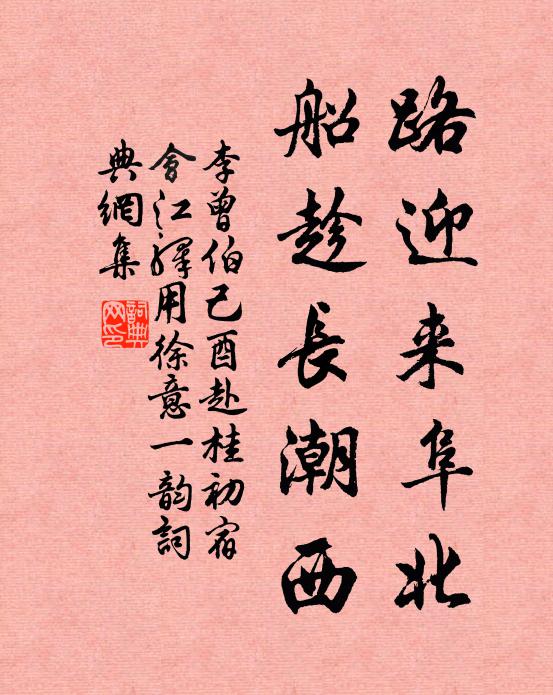 路迎来阜北
船趁長潮西
李曾伯己酉赴桂初宿
會江驛用徐意一韵詞
典網集
詞典
网印